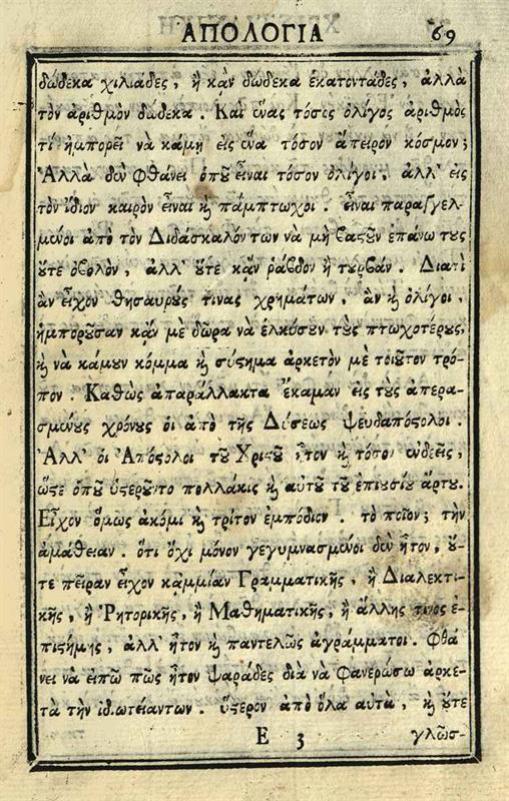 ΑΠΟΛΟΓΙΑ 69
δώδεκα χιλιάδες, ἢ κᾂν δώδεκα ἑκατοντάδες, ἀλλὰ
τὸν ἀριθμὸν δώδεκα. Καὶ ἕνας τόσος ὀλίγος ἀριθμὸς
τί ἠμπορεῖ νὰ κάμῃ εἰς ἕνα τόσον ἄπειρον κόσμον;
Ἀλλὰ δὲν φθάνει ὁποῦ εἶναι τόσον ὀλίγοι, ἀλλ' εἰς
τὸν ἴδιον καιρὸν εἶναι ϗ πάμπτωχοι. εἶναι παραγγελ-
μένοι ἀπὸ τὸν Διδάσκαλόν των νὰ μὴ βαστοῦν ἐπάνω τους
οὔτε ὀβολὸν, ἀλλ' οὔτε κᾂν ῥάβδον ἢ τυρβάν. Διατὶ
ἂν εἶχον θησαυρούς τινας χρημάτων, ἂν ϗ ὀλίγοι,
ἠμποροῦσαν κᾂν μὲ δῶρα νὰ ἑλκύσουν τοὺς πτωχοτέρους,
ϗ νὰ κάμουν κόμμα ϗ σύστημα ἀρκετὸν μὲ τοιοῦτον τρό-
πον. Καθὼς ἀπαράλλακτα ἔκαμαν εἰς τοὺς ἀπερα-
σμένους χρόνους οἱ ἀπὸ τῆς Δύσεως ψευδαπόστολοι.
Ἀλλ' οἱ Ἀπόστολοι τοῦ Χριστοῦ ἦτον ϗ τόσον ἐνδεεῖς,
ὥστε ὁποῦ ὑστεροῦντο πολλάκις ϗ αὐτοῦ τοῦ ἐπιουσίου ἄρτου.
Εἶχον ὅμως ἀκόμι ϗ τρίτον ἐμπόδιον. τὸ ποῖον; τὴν
ἀμάθειαν. ὅτι ὄχι μόνον γεγυμνασμένοι δὲν ἦτον, οὔ-
τε πεῖραν εἶχον καμμίαν Γραμματικῆς, ἢ Διαλεκτι-
κῆς, ἢ Ῥητορικῆς, ἢ Μαθηματικῆς, ἢ ἄλλης τινος ἐ-
πιστήμης, ἀλλ' ἦτον ϗ παντελῶς ἀγράμματοι. Φθά
νει νὰ εἰπῶ πῶς ἦτον ψαράδες διὰ νὰ φανερώσω ἀρκε-
τὰ τὴν ἰδιωτείαντων. ὕστερον ἀπὸ ὅλα αὐτὰ, ϗ οὔτε
Ε 3 γλῶσ-